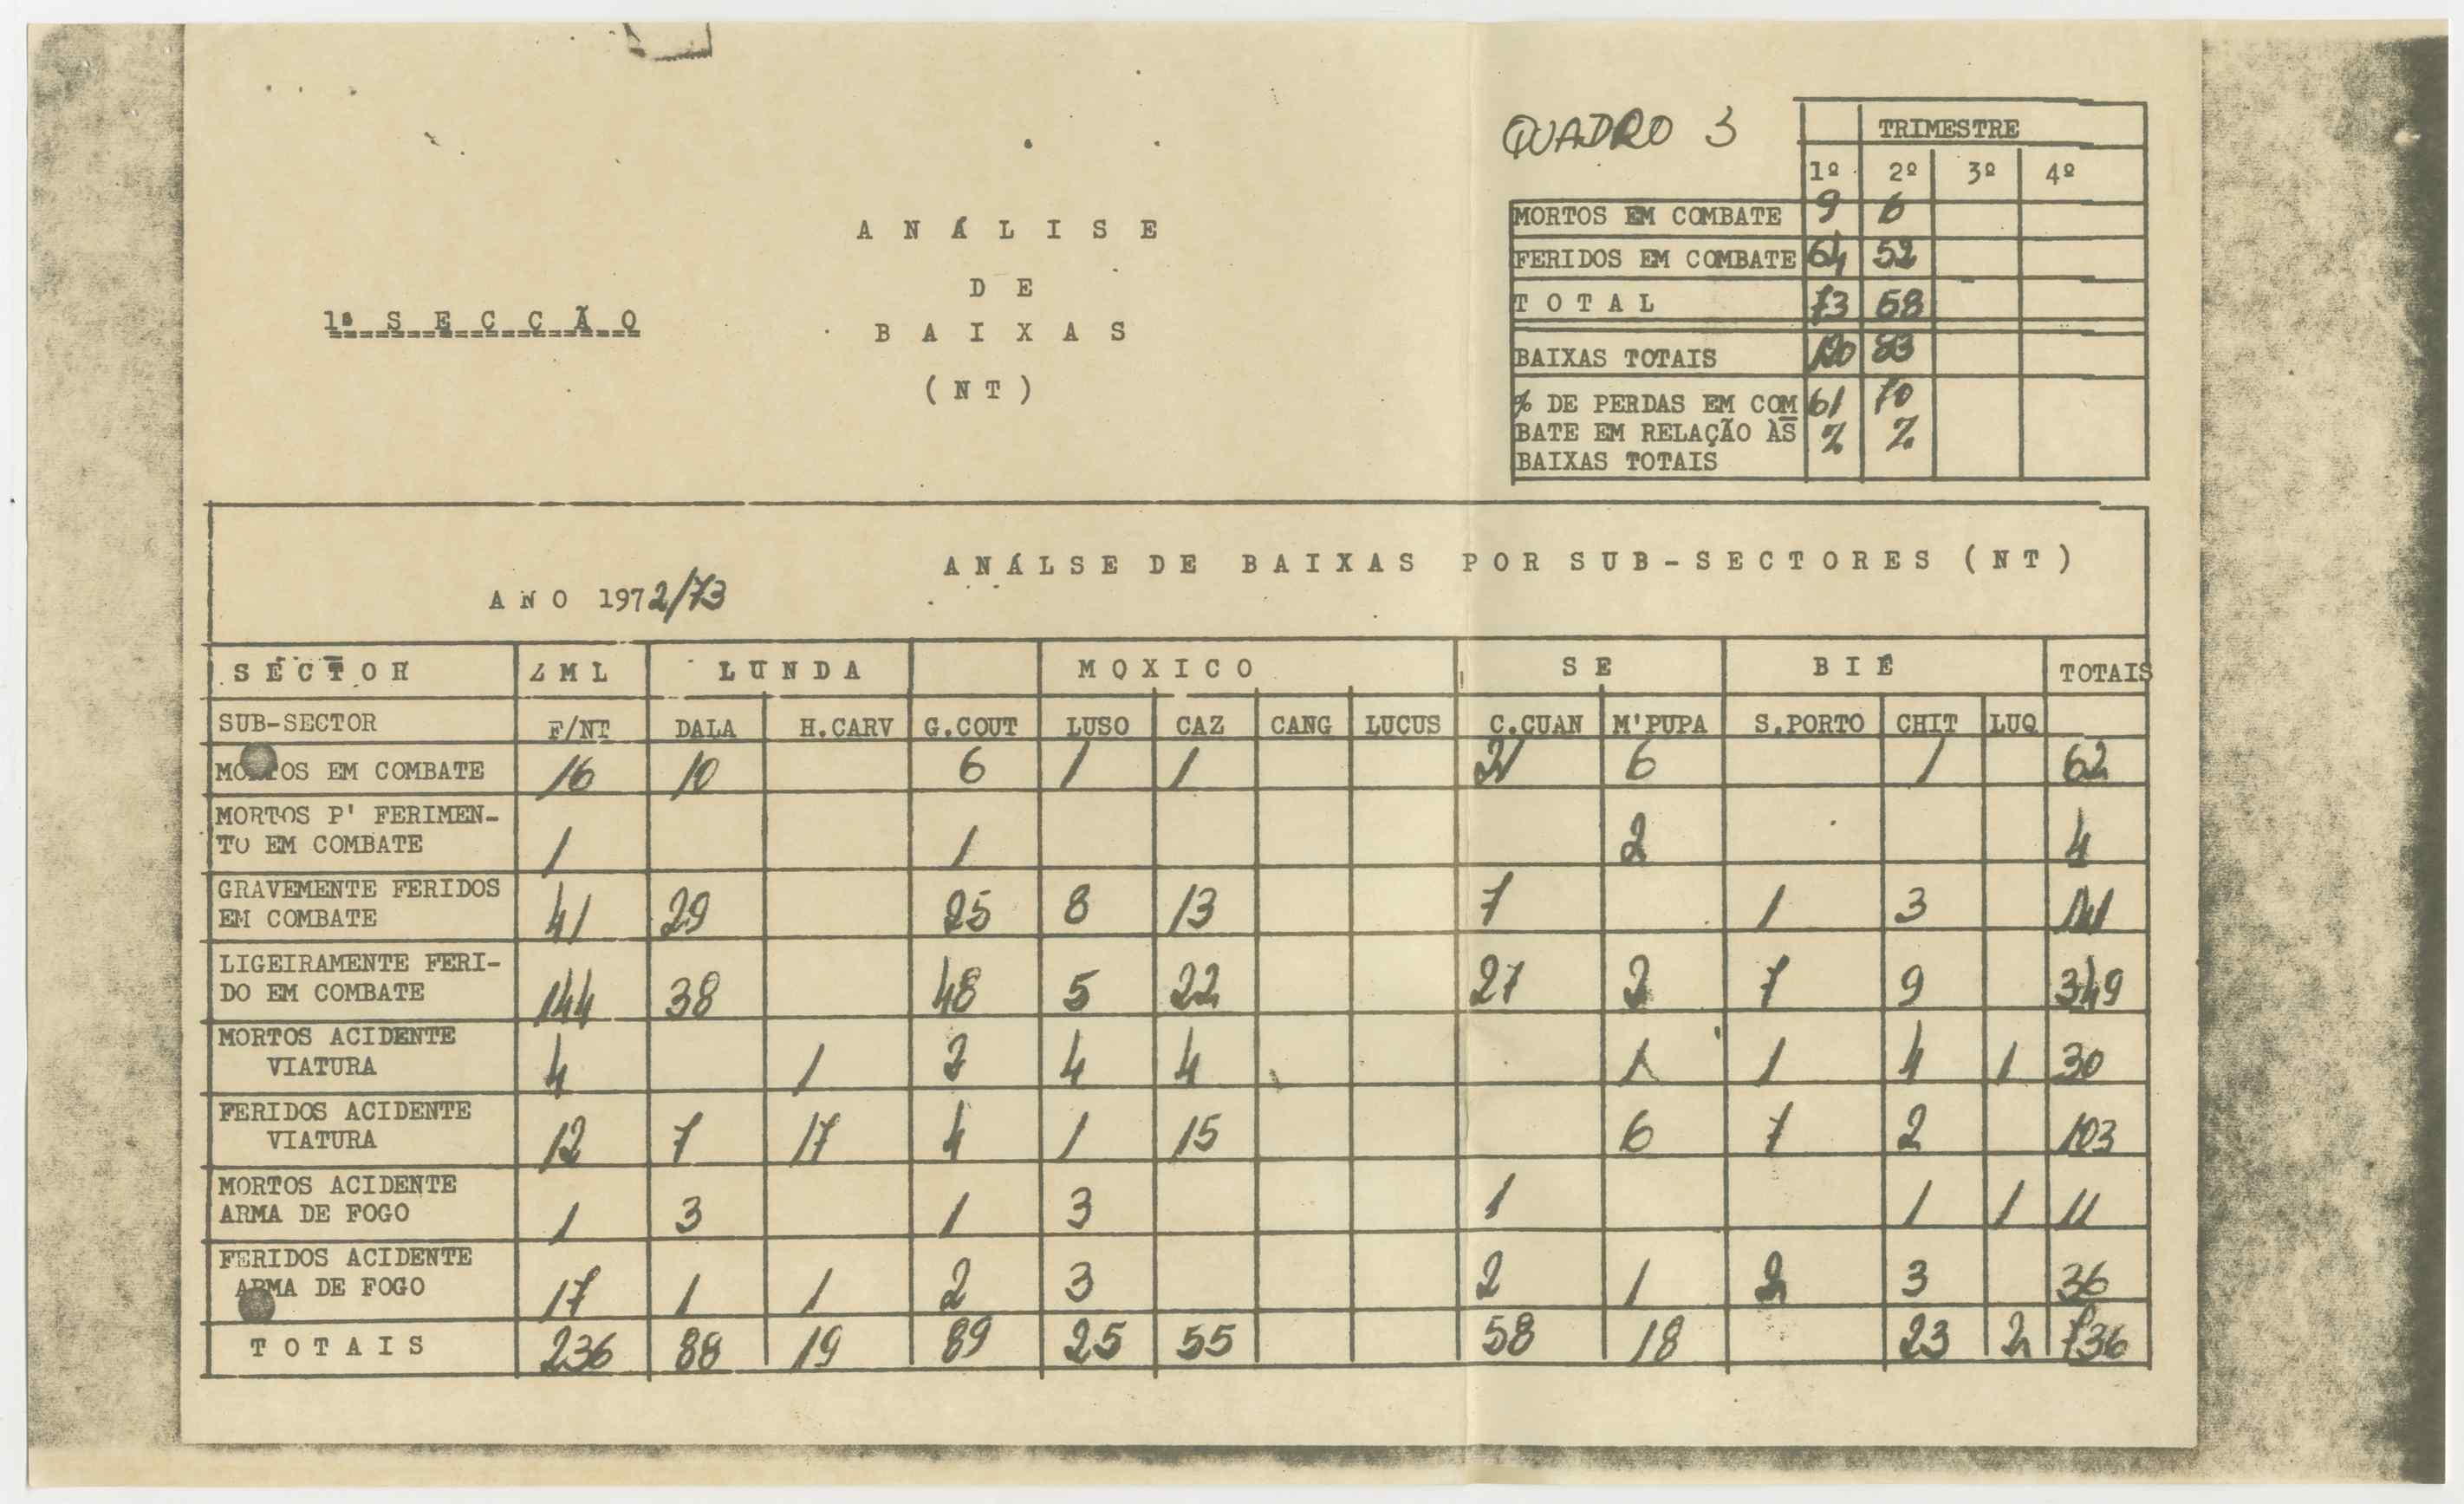 QUADRO 3
TRIMESTRE
1º 2º 3º 4º
MORTOS EM COMBATE 9 6
FERIDOS EM COMBATE 64 52
TOTAL 73 58
BAIXAS TOTAIS 120 83
% DE PERDAS EM COM 61 70
BATE EM RELAÇÃO ÀS % %
BAIXAS TOTAIS
ANÁLISE
DE
1ª SECÇÃO
BAIXAS
(NT)
ANÁLSE DE BAIXAS POR SUB-SECTORES (NT)
ANO 1972/73
SECTOR ZML LUNDA MOXICO SE BIÉ TOTAIS
SUB-SECTOR F/NT DALA H.CARV G.COUT LUSO CAZ CANG LUCUS C.CUAN M'PUPA S.PORTO CHIT LUQ
MORTOS EM COMBATE 16 10 6 1 1 21 6 1 62
MORTOS P' FERIMEN-
TO EM COMBATE 1 1 2 4
GRAVEMENTE FERIDOS
EM COMBATE 41 29 25 8 13 7 1 3 141
LIGEIRAMENTE FERI-
DO EM COMBATE 144 38 48 5 22 27 2 7 9 349
MORTOS ACIDENTE
VIATURA 4 1 2 4 4 1 1 4 1 30
FERIDOS ACIDENTE
VIATURA 12 7 17 4 1 15 6 7 2 103
MORTOS ACIDENTE
ARMA DE FOGO 1 3 1 3 1 1 1 11
FERIDOS ACIDENTE
ARMA DE FOGO 17 1 1 2 3 2 1 2 3 36
TOTAIS 236 88 19 89 25 55 58 18 23 2 736